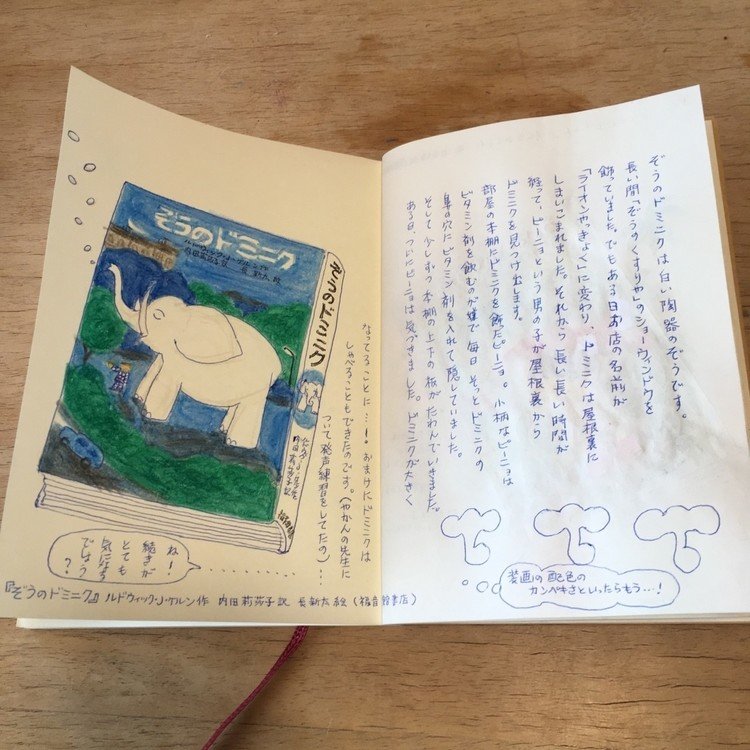 ぞうのドミニクは白い陶器のぞうです。
長い間「ぞうのくすりや」のショーウィンドウを
飾っていました。でもある日お店の名前が
「ライオンやっきょく」に変わり、ドミニクは屋根裏に
しまいこまれました。それから長い長い時間が
経って、ピーニョという男の子が屋根裏から
ドミニクを見つけ出します。
部屋の本棚にドミニクを飾ったピーニョ。小柄なピーニョは
ビタミン剤を飲むのが嫌で毎日そっとドミニクの
鼻の穴にビタミン剤を入れて隠していました。
そして少しずつ本棚の上下の板がたわんでいきました。
ある日、ついにピーニョは気づきました。ドミニクが大きく
装画の配色の
カンペキさといったらもう…!
なってることに…!おまけにドミニクは
しゃべることもできたのです。(やかんの先生に
ついて発声練習をしてたの)……
ぞうのドミニク
ルドウィック・J・ケルン 作
内田莉莎子 訳 長 新太 絵
ぞうのドミニク
内田莉莎子訳
福音館
ね!
続きが
とても
気になる
でしょう
?
『ぞうのドミニク』 ルドウィック・J・ケルン作 内田莉莎子訳 長新太絵 (福音館書店)